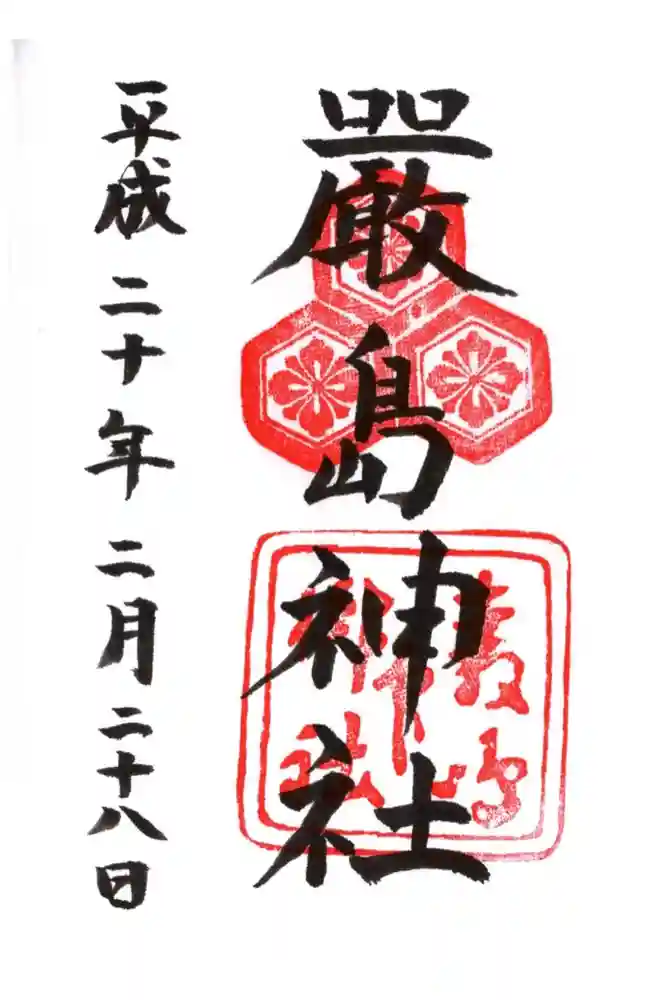 嚴島神社
平成二十年二月二十八日